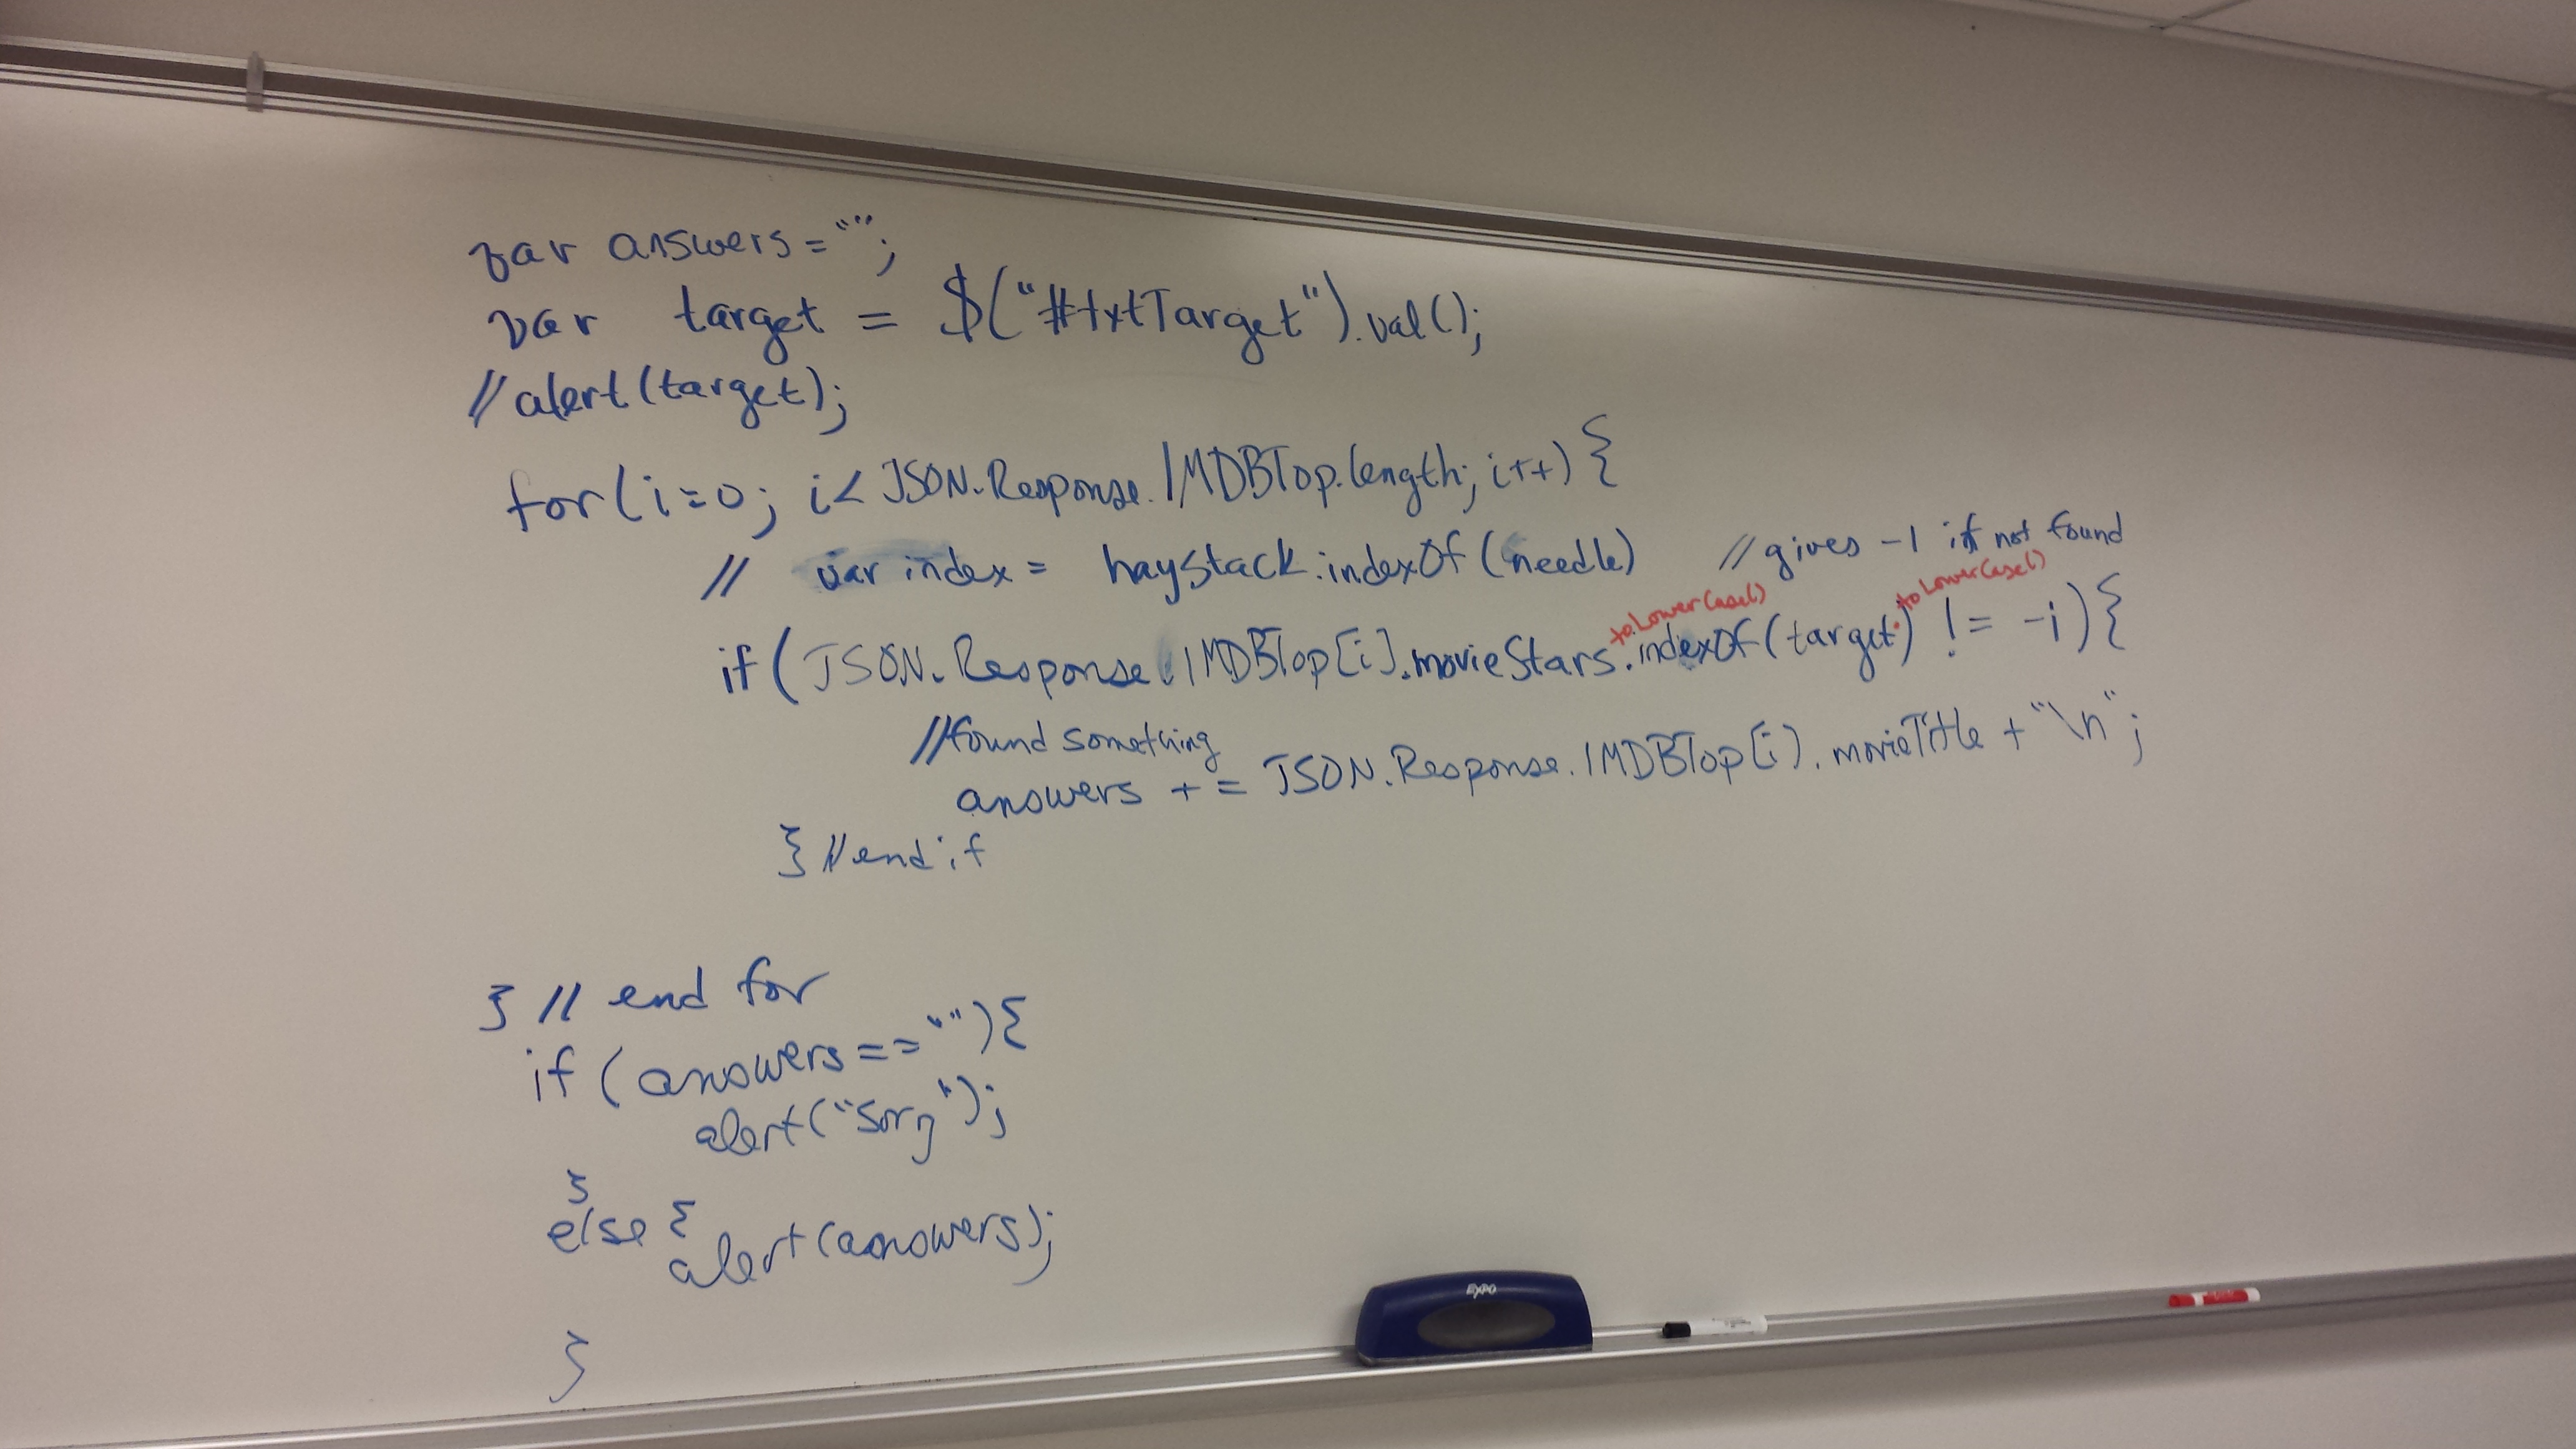 var answers = "";
var target = $("#txtTarget").val();
//alert(target);
for(i=0; i< JSON.Response.IMDBTop.length; i++){
// var index = haystack.indexOf(needle) //gives -1 if not found
toLowerCase() toLowerCase()
if( JSON.Response.IMDBTop[i].movieStars.indexOf(target.) != -1){
//found something
answers += JSON.Response.IMDBTop[i].movieTitle + "\n";
} //end if
} // end for
if (answers==""){
alert("Sorry");
}
else {
alert(answers);
}
EXPO